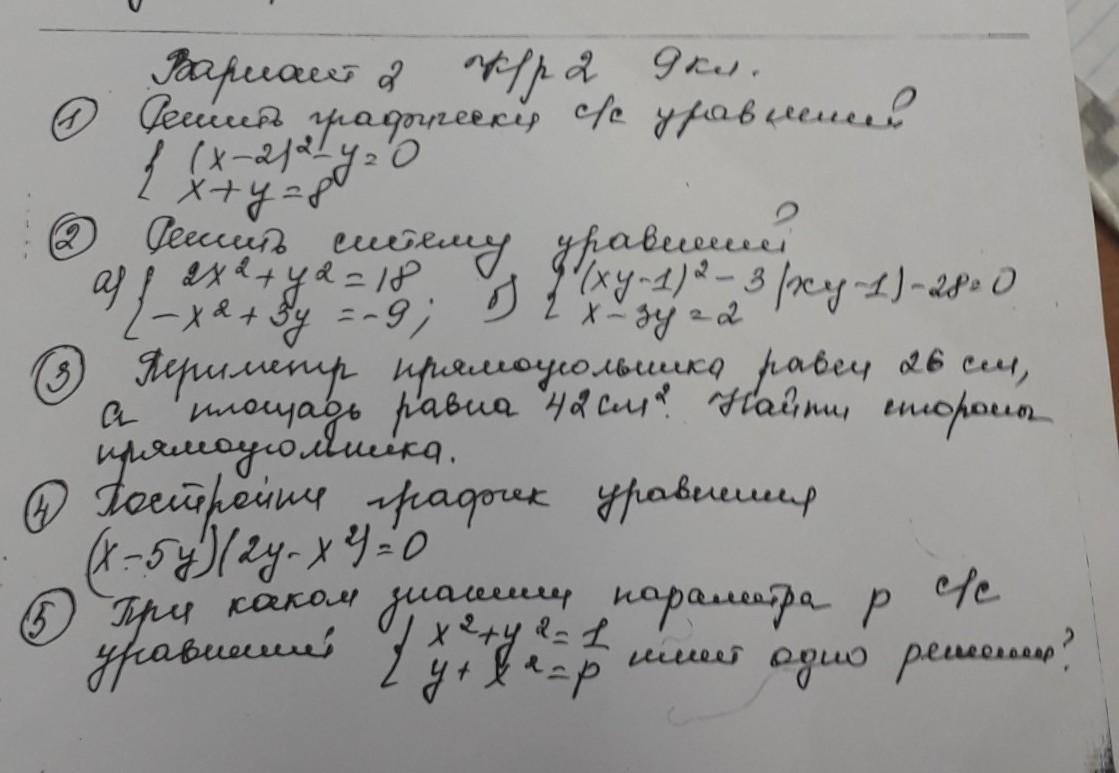 Вариант 2 К/р 2 9 кл.
① Решить графически с/с уравнений
{ (x-2)²-y=0
x+y=8
② Решить систему уравнений
а) { 2x²+y²=18 б) { (xy-1)²-3(xy-1)-28=0
-x²+3y=-9; x-3y=2
③ Периметр прямоугольника равен 26 см,
а площадь равна 42 см². Найти стороны
прямоугольника.
④ Постройте график уравнения
(x-5y)(2y-x²)=0
⑤ При каком значении параметра p с/с
уравнений { x²+y²=1
y+x²=p имеет одно решение?